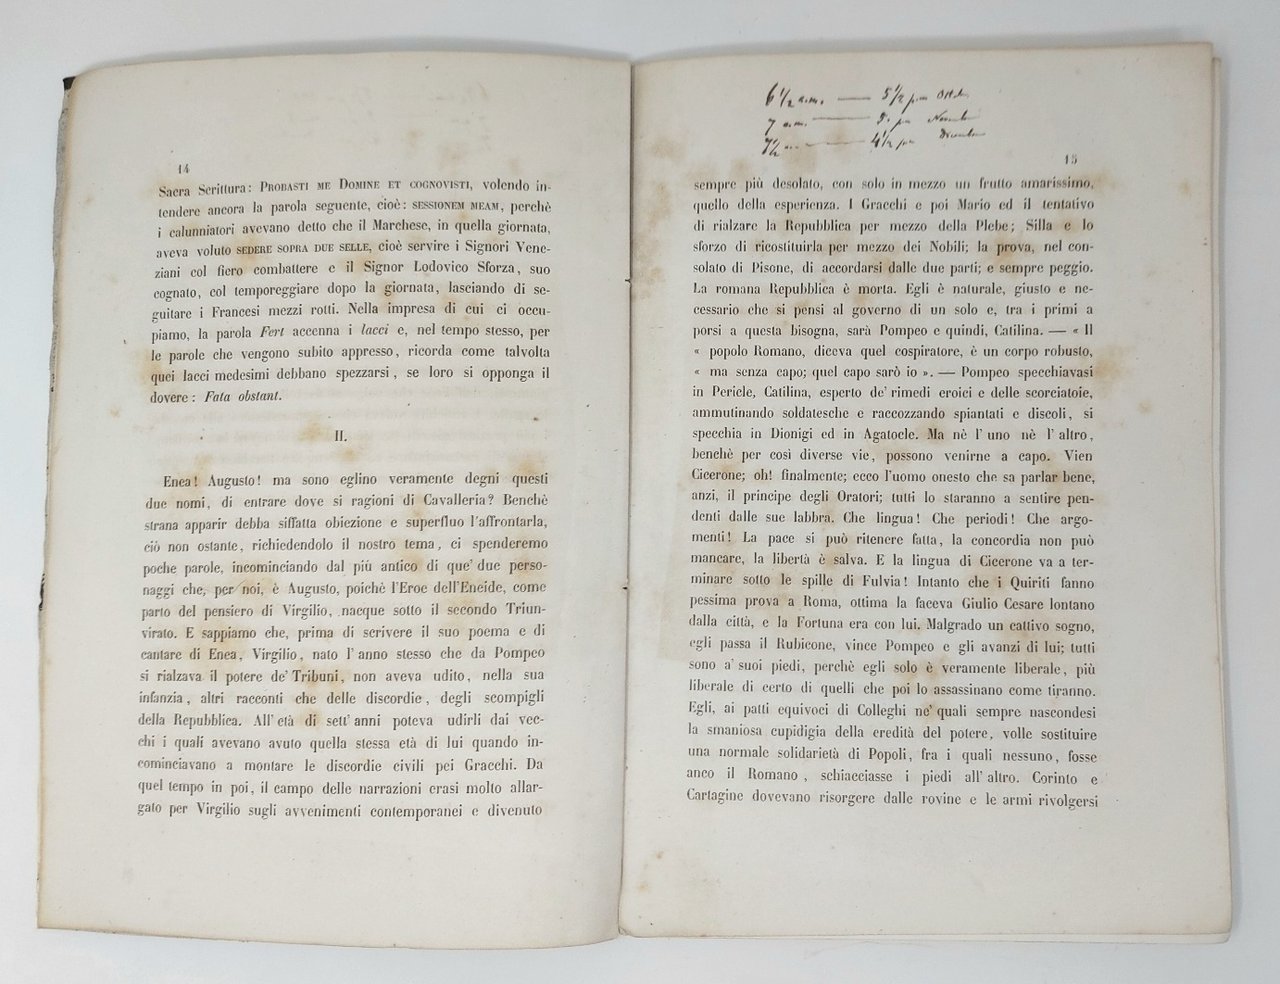 14
Sacra Scrittura: PROBASTI ME DOMINE ET COGNOVISTI, volendo in-
tendere ancora la parola seguente, cioè: SESSIONEM MEAM, perchè
i calunniatori avevano detto che il Marchese, in quella giornata,
aveva voluto SEDERE SOPRA DUE SELLE, cioè servire i Signori Vene-
ziani col fiero combattere e il Signor Lodovico Sforza, suo
cognato, col temporeggiare dopo la giornata, lasciando di se-
guitare i Francesi mezzi rotti. Nella impresa di cui ci occu-
piamo, la parola Fert accenna i lacci e, nel tempo stesso, per
le parole che vengono subito appresso, ricorda come talvolta
quei lacci medesimi debbano spezzarsi, se loro si opponga il
dovere: Fata obstant.
II.
Enea! Augusto! ma sono eglino veramente degni questi
due nomi, di entrare dove si ragioni di Cavalleria? Benchè
strana apparir debba siffatta obiezione e superfluo l'affrontarla,
ciò non ostante, richiedendolo il nostro tema, ci spenderemo
poche parole, incominciando dal più antico di que' due perso-
naggi che, per noi, è Augusto, poichè l'Eroe dell'Eneide, come
parto del pensiero di Virgilio, nacque sotto il secondo Triun-
virato. E sappiamo che, prima di scrivere il suo poema e di
cantare di Enea, Virgilio, nato l'anno stesso che da Pompeo
si rialzava il potere de' Tribuni, non aveva udito, nella sua
infanzia, altri racconti che delle discordie, degli scompigli
della Repubblica. All'età di sett'anni poteva udirli dai vec-
chi i quali avevano avuto quella stessa età di lui quando in-
cominciavano a montare le discordie civili pei Gracchi. Da
quel tempo in poi, il campo delle narrazioni erasi molto allar-
gato per Virgilio sugli avvenimenti contemporanei e divenuto
6 1/2 a.m. — 5 1/2 pm
7 a.m. — 5. pm
7 1/2 — 4 1/2 pm
15
sempre più desolato, con solo in mezzo un frutto amarissimo,
quello della esperienza. I Gracchi e poi Mario ed il tentativo
di rialzare la Repubblica per mezzo della Plebe; Silla e lo
sforzo di ricostituirla per mezzo dei Nobili; la prova, nel con-
solato di Pisone, di accordarsi dalle due parti; e sempre peggio.
La romana Repubblica è morta. Egli è naturale, giusto e ne-
cessario che si pensi al governo di un solo e, tra i primi a
porsi a questa bisogna, sarà Pompeo e quindi, Catilina. — « Il
« popolo Romano, diceva quel cospiratore, è un corpo robusto,
« ma senza capo; quel capo sarò io ». — Pompeo specchiavasi
in Pericle, Catilina, esperto de' rimedi eroici e delle scorciatoie,
ammutinando soldatesche e raccozzando spiantati e discoli, si
specchia in Dionigi ed in Agatocle. Ma nè l'uno nè l'altro,
benchè per così diverse vie, possono venirne a capo. Vien
Cicerone; oh! finalmente; ecco l'uomo onesto che sa parlar bene,
anzi, il principe degli Oratori; tutti lo staranno a sentire pen-
denti dalle sue labbra. Che lingua! Che periodi! Che argo-
menti! La pace si può ritenere fatta, la concordia non può
mancare, la libertà è salva. E la lingua di Cicerone va a ter-
minare sotto le spille di Fulvia! Intanto che i Quiriti fanno
pessima prova a Roma, ottima la faceva Giulio Cesare lontano
dalla città, e la Fortuna era con lui. Malgrado un cattivo sogno,
egli passa il Rubicone, vince Pompeo e gli avanzi di lui; tutti
sono a' suoi piedi, perchè egli solo è veramente liberale, più
liberale di certo di quelli che poi lo assassinano come tiranno.
Egli, ai patti equivoci di Colleghi ne' quali sempre nascondesi
la smaniosa cupidigia della eredità del potere, volle sostituire
una normale solidarietà di Popoli, fra i quali nessuno, fosse
anco il Romano, schiacciasse i piedi all'altro. Corinto e
Cartagine dovevano risorgere dalle rovine e le armi rivolgersi